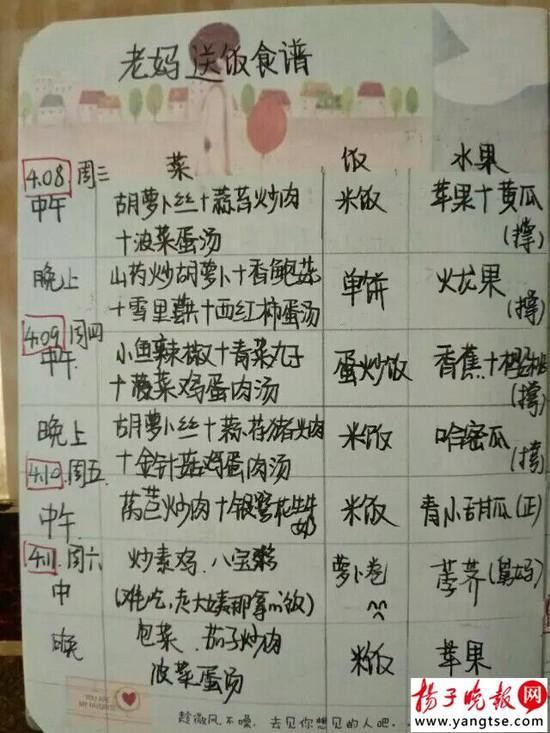 老妈送饭食谱
菜 饭 水果
4.08 周三
中午 胡萝卜丝+蒜苔炒肉 米饭 苹果+黄瓜
+菠菜蛋汤 (撑)
晚上 山药炒胡萝卜+香鲍菇 单饼 火龙果
+雪里蕻+西红柿蛋汤 (撑)
4.09 周四
中午 小鱼辣椒+青菜丸子 蛋炒饭 香蕉+橙
+菠菜鸡蛋肉汤 (撑)
晚上 胡萝卜丝+蒜苔猪头肉 米饭 哈密瓜
+金针菇鸡蛋肉汤 (撑)
4.10 周五
中午 莴苣炒肉+银鹭花生牛奶 米饭 青小甜瓜(正)
4.11 周六
中 炒素鸡、八宝粥 萝卜卷 荸荠(舅妈)
(难吃,老大姨那拿的饭)
晚 包菜、茄子炒肉 米饭 苹果
菠菜蛋汤
趁微风不噪,去见你想见的人吧..
扬子晚报网
www.yangtse.com